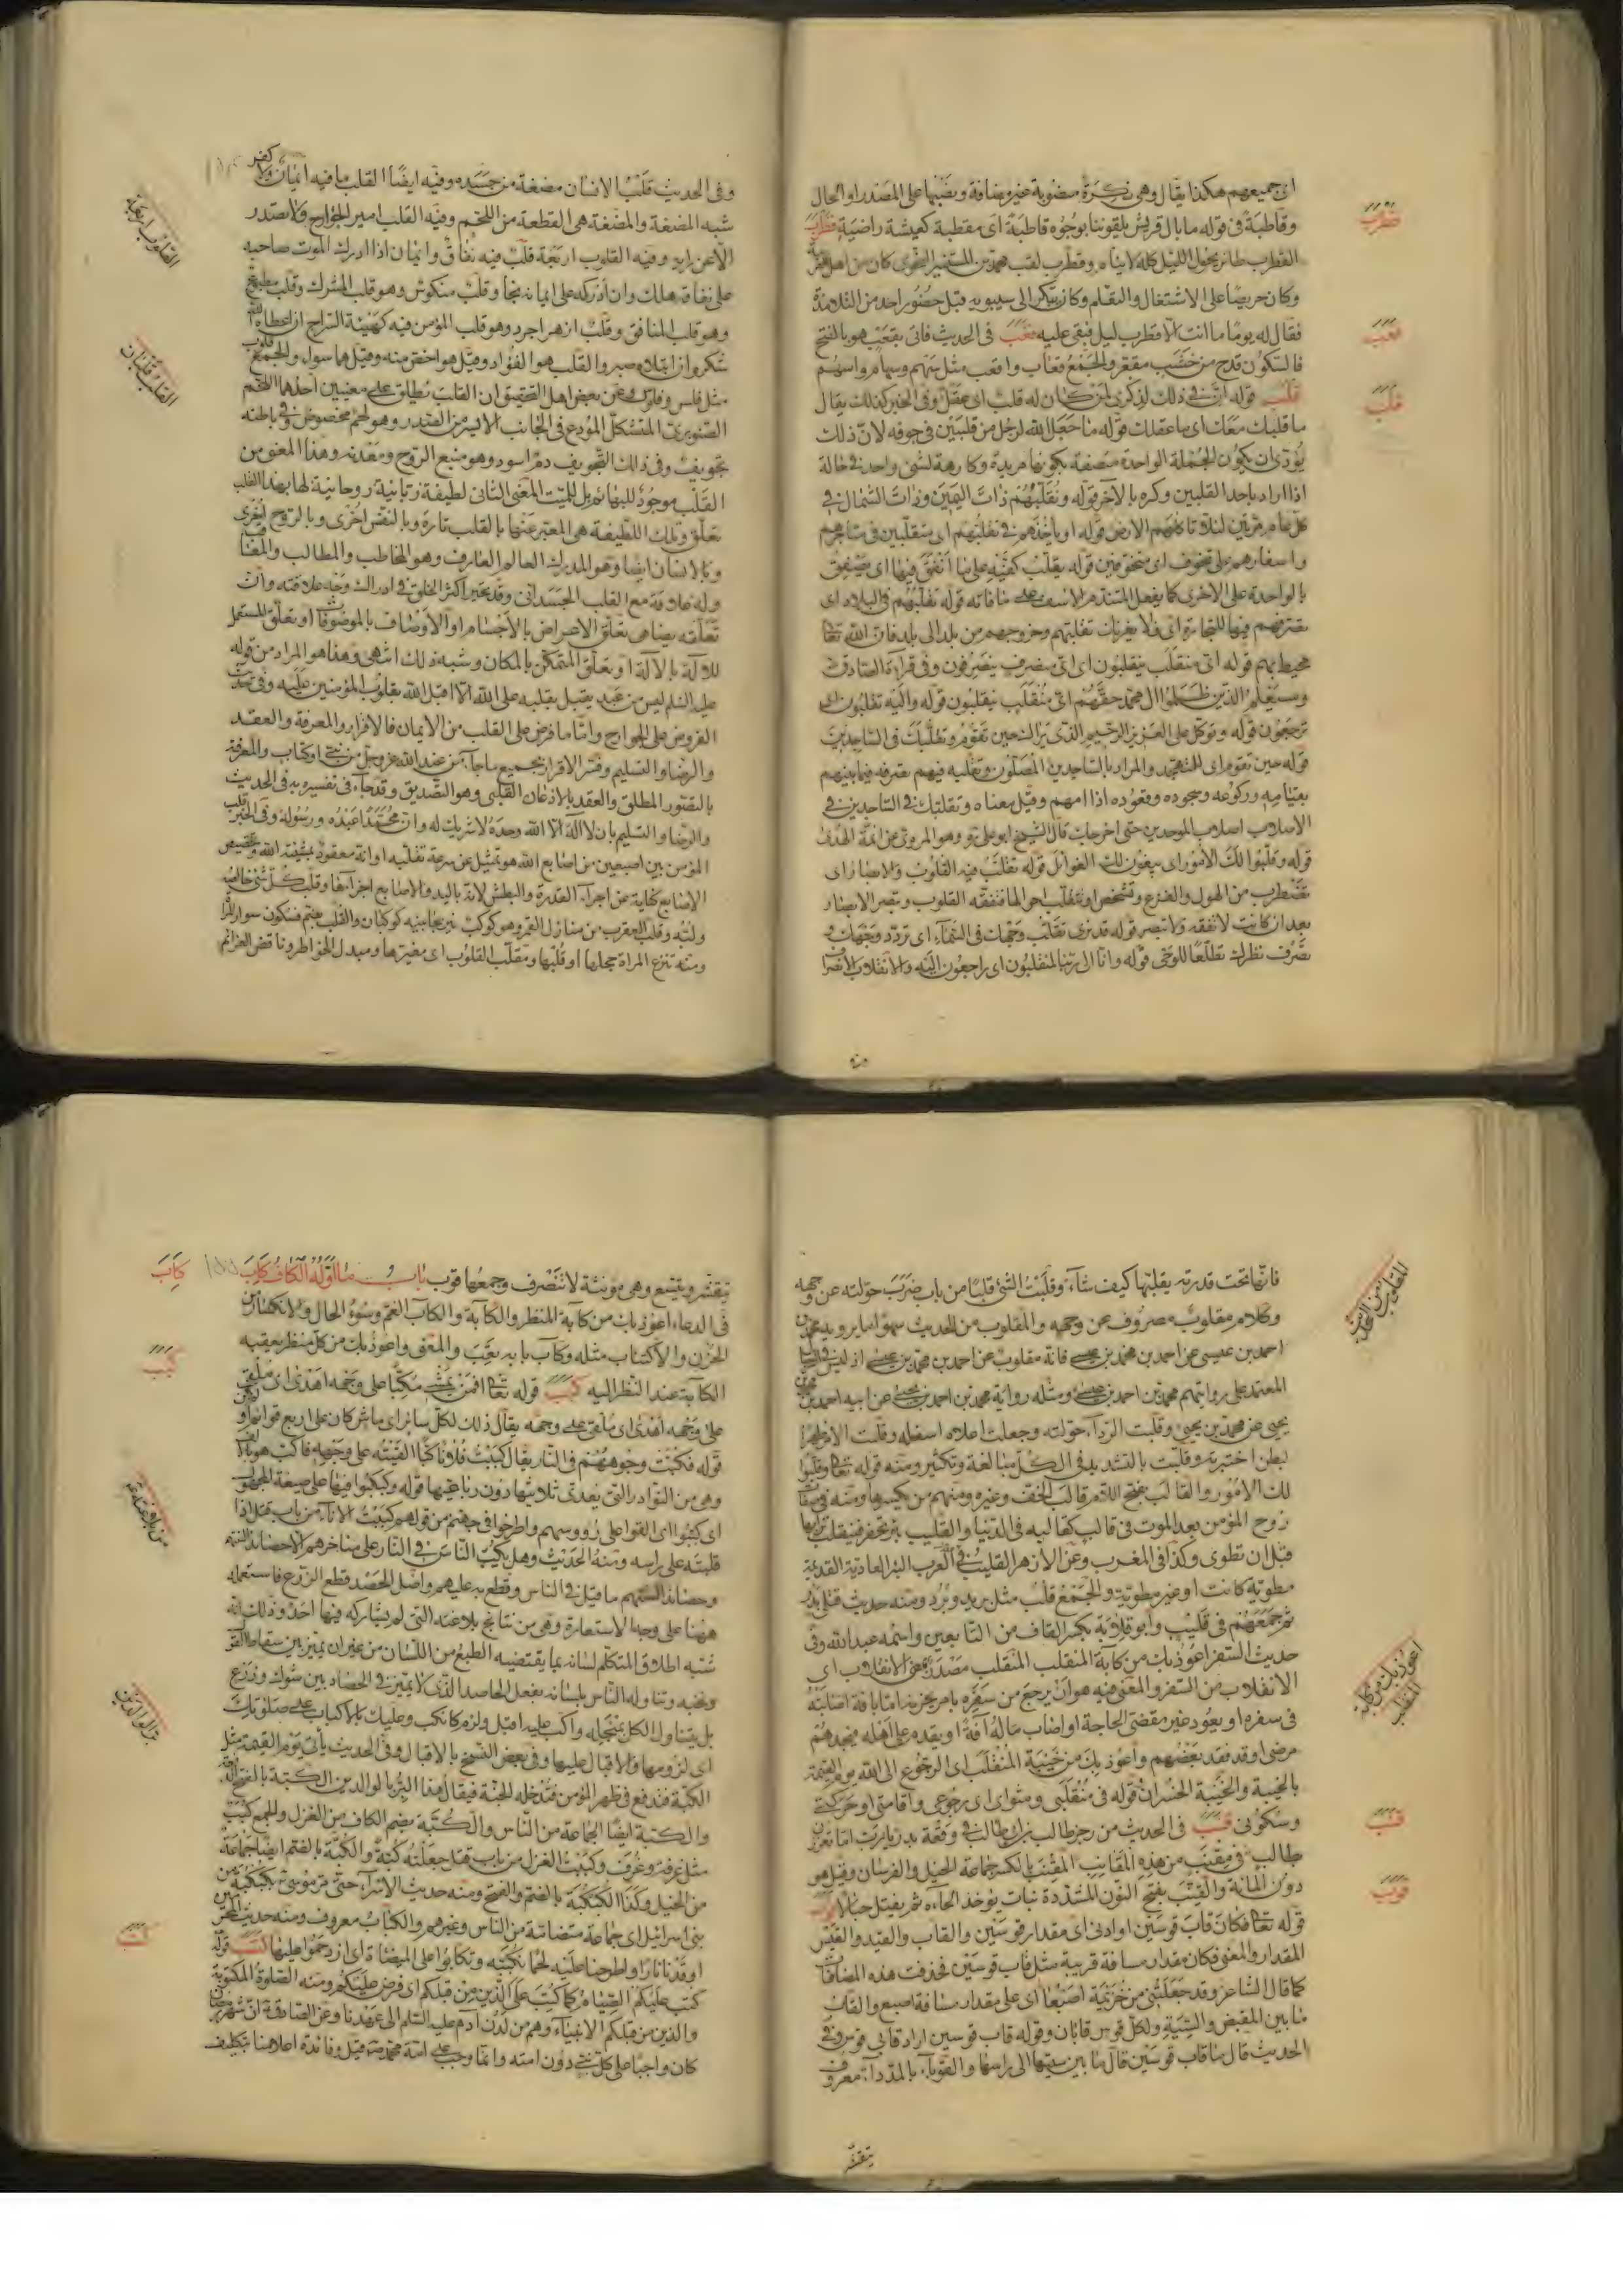 اى جميعهم هكذا يقال وهى نكرة منصوبة غير مضافة ونصبها على المصدر او الحال
وقاطبة فى قوله ما بال قريش يلقوننا بوجوه قاطبة اى مقطبة كعيشة راضية قطرب
القطرب طائر يجول الليل كله لا ينام وقطرب لقب محمد بن المستنير النحوى كان من اهل
وكان حريصا على الاشتغال والتعلم وكان يبكر الى سيبويه قبل حضور احد من التلامذة
فقال له يوما ما انت الا قطرب ليل فبقى عليه قعب فى الحديث فاتى بقعب هو بالفتح
فالسكون قدح من خشب مقعر والجمع قعاب واقعب مثل سهم وسهام واسهم
قلب قوله ان فى ذلك لذكرى لمن كان له قلب اى عقل وفى الخبر كذلك يقال
ما قلبك معك اى ما عقلك قوله ما جعل الله لرجل من قلبين فى جوفه لان ذلك
يؤدى ان يكون الجملة الواحدة متصفة بكونها مريدة وكارهة لشئ واحد فى حالة
اذا اراد باحد القلبين وكره بالاخر قوله ونقلبهم ذات اليمين وذات الشمال فى
كل عام مرتين لئلا تاكلهم الارض قوله او ياخذهم فى تقلبهم اى متقلبين فى متاجرهم
واسفارهم على تخوف اى متخوفين قوله يقلب كفيه على ما انفق فيها اى يصفق
بالواحدة على الاخرى كما يفعل المتندم الاسف على ما فاته قوله تقلبهم فى البلاد اى
تصرفهم فيها للتجارة اى فلا يغررك تقلبهم وخروجهم من بلد الى بلد فان الله تعا
محيط بهم قوله اى منقلب ينقلبون اى اى منصرف ينصرفون وفى قراءة الصادق
وسيعلم الذين ظلموا ال محمد حقهم اى منقلب ينقلبون قوله واليه تقلبون اى
ترجعون قوله وتوكل على العزيز الرحيم الذى يراك حين تقوم وتقلبك فى الساجدين
قوله حين تقوم اى للتهجد والمراد بالساجدين المصلون وتقلبه فيهم تصرفه فيما بينهم
بقيامه وركوعه وسجوده وقعوده اذا امهم وقيل معناه وتقلبك فى الساجدين فى
الاصلاب اصلاب الموحدين حتى اخرجك قال الشيخ ابو على وهو المروى عن ائمة الهدى
قوله وقلبوا لك الامور اى يبغون لك الغوائل قوله تتقلب فيه القلوب والابصار اى
تضطرب من الهول والفزع وتشخص او تتقلب احوالها فتفقه القلوب وتبصر الابصار
بعد ان كانت لا تفقه ولا تبصر قوله قد نرى تقلب وجهك فى السماء اى تردد وجهك و
تصرف نظرك تطلعا للوحى قوله وانا الى ربنا لمنقلبون اى راجعون اليه والانقلاب الانصراف
قطرب
قعب
قلب
ومنه
وفى الحديث قلب الانسان مضغة من جسده وفيه ايضا القلب ما فيه ايمان ولا كفر
شبه المضغة والمضغة هى القطعة من اللحم وفيه القلب امير الجوارح ولا تصدر
الا عن رايه وفيه القلوب اربعة قلب فيه نفاق وايمان اذا ادرك الموت صاحبه
على نفاقه هلك وان ادركه على ايمانه نجا وقلب منكوس وهو قلب المشرك وقلب مطبوع
وهو قلب المنافق وقلب ازهر اجرد وهو قلب المؤمن فيه كهيئة السراج ان اعطاه الله
شكر وان ابتلاه صبر والقلب هو الفؤاد وقيل هو اخص منه وقيل هما سواء والجمع قلوب
مثل فلس وفلوس وعن بعض اهل التحقيق ان القلب يطلق على معنيين احدهما اللحم
الصنوبرى المتشكل المودع فى الجانب الايسر من الصدر وهو لحم مخصوص فى باطنه
تجويف وفى ذلك التجويف دم اسود وهو منبع الروح ومعدنه وهذا المعنى من
القلب موجود للبهائم بل للميت المعنى الثانى لطيفة ربانية روحانية لها بهذا القلب
تعلق وتلك اللطيفة هى المعبر عنها بالقلب تارة وبالنفس اخرى وبالروح اخرى
وبالانسان ايضا وهو المدرك العالم العارف وهو المخاطب والمطالب والمعاقب
وله علاقة مع القلب الجسدانى وقد تحير اكثر الخلق فى ادراك وجه علاقته وان
تعلقه يضاهى تعلق الاعراض بالاجسام او الاوصاف بالموصوفات او تعلق المستعمل
للالة بالالة او تعلق المتمكن بالمكان وشبه ذلك انتهى وهذا هو المراد من قوله
عليه السلم ليس من عبد يقبل بقلبه على الله الا اقبل الله بقلوب المؤمنين عليه وفى حديث
الفروض على الجوارح واما ما فرض على القلب من الايمان فالاقرار والمعرفة والعقد
والرضا والتسليم وفسر الاقرار بجميع ما جاء من عند الله عز وجل من نبى او كتاب والمعرفة
بالتصور المطلق والعقد بالاذعان القلبى وهو التصديق وقد جاء فى تفسيره فى الحديث
والرضا والتسليم بان لا اله الا الله وحده لا شريك له وان محمدا عبده ورسوله وفى الخبر قلب
المؤمن بين اصبعين من اصابع الله هو تمثيل عن سرعة تقلبه او انه معقود بمشيئة الله وتخصيص
الاصابع كناية عن اجراء القدرة والبطش لانه باليد والاصابع اجزاءها وقلب كل شئ خالصه
ولبه وقلب العقرب من منازل القمر وهو كوكب نير بجانبيه كوكبان والقلب بضم فسكون سوار للمراة
ومنه تنزع المراة حجلها او قلبها ومقلب القلوب اى مغيرها ومبدل الخواطر وناقض العزائم
القلوب اربعة
القلب قلبان
فانها تحت قدرته يقلبها كيف شاء وقلبت الشئ قلبا من باب ضرب حولته عن وجهه
وكلام مقلوب مصروف عن وجهه والمقلوب من الحديث سهوا ما يرويه محمد بن
احمد بن عيسى عن احمد بن محمد بن عيسى فانه مقلوب عن احمد بن محمد بن عيسى اذ ليس فى الرجال
المعتمد على رواتهم محمد بن احمد بن عيسى ومثله رواية محمد بن احمد بن عيسى عن ابيه احمد بن محمد
يحيى عن محمد بن يحيى وقلبت الرداء حولته وجعلت اعلاه اسفله وقلبت الامر ظهرا
لبطن اختبرته وقلبت بالتشديد فى الكل مبالغة وتكثير ومنه قوله تعا وقلبوا
لك الامور والقالب بفتح اللام قالب الخف وغيره ومنهم من يكسرها ومنه فى صفات
روح المؤمن بعد الموت فى قالب كقالبه فى الدنيا والقليب بئر تحفر فينقلب ترابها
قبل ان تطوى وكذا فى المغرب وعن الازهر القليب فى العرب البئر العادية القديمة
مطوية كانت او غير مطوية والجمع قلب مثل بريد وبرد ومنه حديث قتلى بدر
ثم جمعهم فى قليب وابو قلابة بكسر القاف من التابعين واسمه عبد الله وفى
حديث السفر اعوذ بك من كآبة المنقلب المنقلب مصدر بمعنى الانقلاب اى
الانقلاب من السفر والمعنى فيه هو ان يرجع من سفره بامر يحزنه اما بافة اصابته
فى سفره او يعود غير مقضى الحاجة او اصاب ماله آفة او يقدم على اهله فيجدهم
مرضى او قد فقد بعضهم واعوذ بك من خيبة المنقلب اى الرجوع الى الله يوم القيمة
بالخيبة والخيبة الخسران قوله فى منقلبى ومثواى اى رجوعى واقامتى او حركتى
وسكونى قنب فى الحديث من رجز طالب بن ابى طالب فى وقعة بدر يا رب اما تعزن
طالب فى مقنب من هذه المقانب المقنب بالكسر جماعة الخيل والفرسان وقيل هو
دون المائة والقنب بفتح النون المشددة نبات يؤخذ لحاءه ثم يفتل حبالا قوب
قوله تعا فكان قاب قوسين او ادنى اى مقدار قوسين والقاب والقيد والقيس
المقدار والمعنى فكان مقدار مسافة قريبة مثل قاب قوسين فحذفت هذه المضافات
كما قال الشاعر وقد جعلتنى من خزيمة اصبعا اى على مقدار مسافة اصبع والقاب
ما بين المقبض والسية ولكل قوس قابان وقوله قاب قوسين اراد قابى قوس وفى
الحديث قال ما قاب قوسين قال ما بين سيتها الى راسها والقوباء بالمد داء معروف
اعوذ بك من كآبة المنقلب
قنب
قوب
يتقشر
يتقشر ويتسع وهى مؤنثة لا تنصرف وجمعها قوب باب ما اوله الكاف كاب
فى الدعاء اعوذ بك من كآبة المنظر والكآبة والكأب الغم وسوء الحال والانكسار من
الحزن والاكتئاب مثله وكأب يا به تعب والمعنى واعوذ بك من كل منظر يعقبه
الكآبة عند النظر اليه كبب قوله تعا افمن يمشى مكبا على وجهه اهدى اى ملقى
على وجهه اهدى اى يلقى على وجهه يقال ذلك لكل سائر اى ماش كان على اربع قوائم او
قوله فكبت وجوههم فى النار يقال كببت فلانا كبا القيته على وجهه فاكب هو بالالف
وهى من النوادر التى يعدى ثلاثيها دون رباعيها قوله وكبكبوا فيها على صيغة المجهول
اى كبوا اى القوا على رؤوسهم واطرحوا فى جهنم من قولهم كببت الاناء من باب قتل اذا
قلبته على راسه ومنه الحديث وهل يكب الناس فى النار على مناخرهم الا حصائد السنتهم
وحصائد السنتهم ما قيل فى الناس وقطع به عليهم واصل الحصد قطع الزرع فاستعماله
ههنا على وجه الاستعارة وهى من نتائج بلاغته التى لم يشاركه فيها احد وذلك انه
شبه اطلاق المتكلم لسانه بما يقتضيه الطبع من اللسان من غير ان يميز بين سقاط القول
ونخبه وتناوله الناس بلسانه بفعل الحاصد الذى لا يميز فى الحصاد بين شوك وزرع
بل يتناول الكل بمنجله واكب عليه اقبل ولزم كانكب وعليك بالاكباب على صلوتك
اى لزومها والاقبال عليها وفى بعض النسخ بالاقبال وفى الحديث يأتى يوم القيمة مثل
الكبة فتدفع فى ظهر المؤمن فتدخله الجنة فيقال هذا البر بالوالدين الكبة بالفتح الدفعة
والكبة ايضا الجماعة من الناس والكبة بضم الكاف من الغزل والجمع كبب
مثل غرفة وغرف وكببت الغزل من باب قتل جعلته كبة والكبة بالضم ايضا جماعة
من الخيل وكذا الكبكبة بالضم والفتح ومنه حديث الاسراء حتى مر موسى بكبكبة من
بنى اسرائيل اى جماعة متضامة من الناس وغيرهم والكباب معروف ومنه حديث
اوقدنا نارا واطرحنا عليه لحما نكببه وتكابوا على الميضاة اى ازدحموا عليها كتب قوله
كتب عليكم الصيام كما كتب على الذين من قبلكم اى فرض عليكم ومنه الصلوة المكتوبة
والذين من قبلكم الانبياء وهم من لدن آدم عليه السلم الى عهدنا وعن الصادق ان شهر رمضان
كان واجبا على كل نبى دون امته وانما وجب على امة محمد قيل وفائدة اعلامنا بتكليف
كاب
كبب
بر الوالدين
كتب